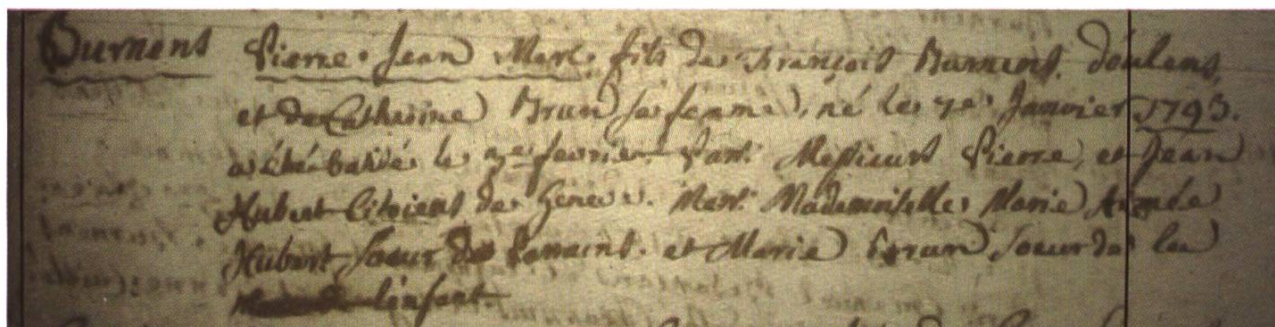 Burnens Pierre Jean Marc fils de François Burnens, d'oulens,
et de Catherine Brun sa femme, né le 7e Janvier 1793.
a été batisé le 3e fevrier. Par: Messieurs Pierre, et Jean
Hubert Citoiens de Genève. Mar: Mademoiselle Marie Aimée
Hubert soeur des Parrains. et Marie Brun soeur de la
de l'enfant.